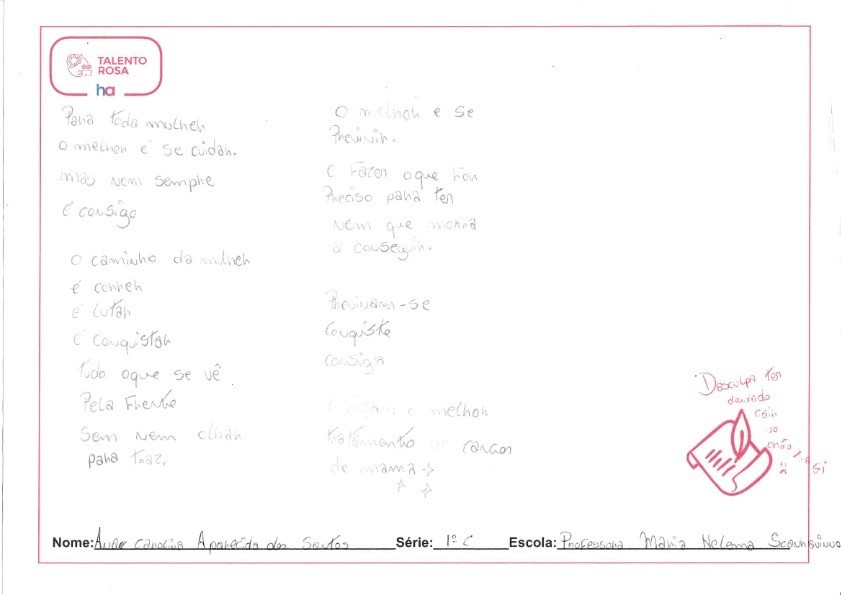 TALENTO
ROSA
ha
Para toda mulher
o melhor é se cuidar.
mas nem sempre
é consigo
o caminho da mulher
é correr
é lutar
é conquistar
tudo oque se vê
Pela Frente
Sem nem olhar
para traz.
O melhor e se
Previnir.
e Fazer oque For
Preciso para ter
nem que morra
a conseguir.
Previnam-se
Conquiste
Consiga
e melhor
tratamento ao cancer
de mama
Desculpa ter
deixado
cair
no
chão
Nome: Carolina Aparecida dos Santos Série: 1º C Escola: Professora Maria Helena